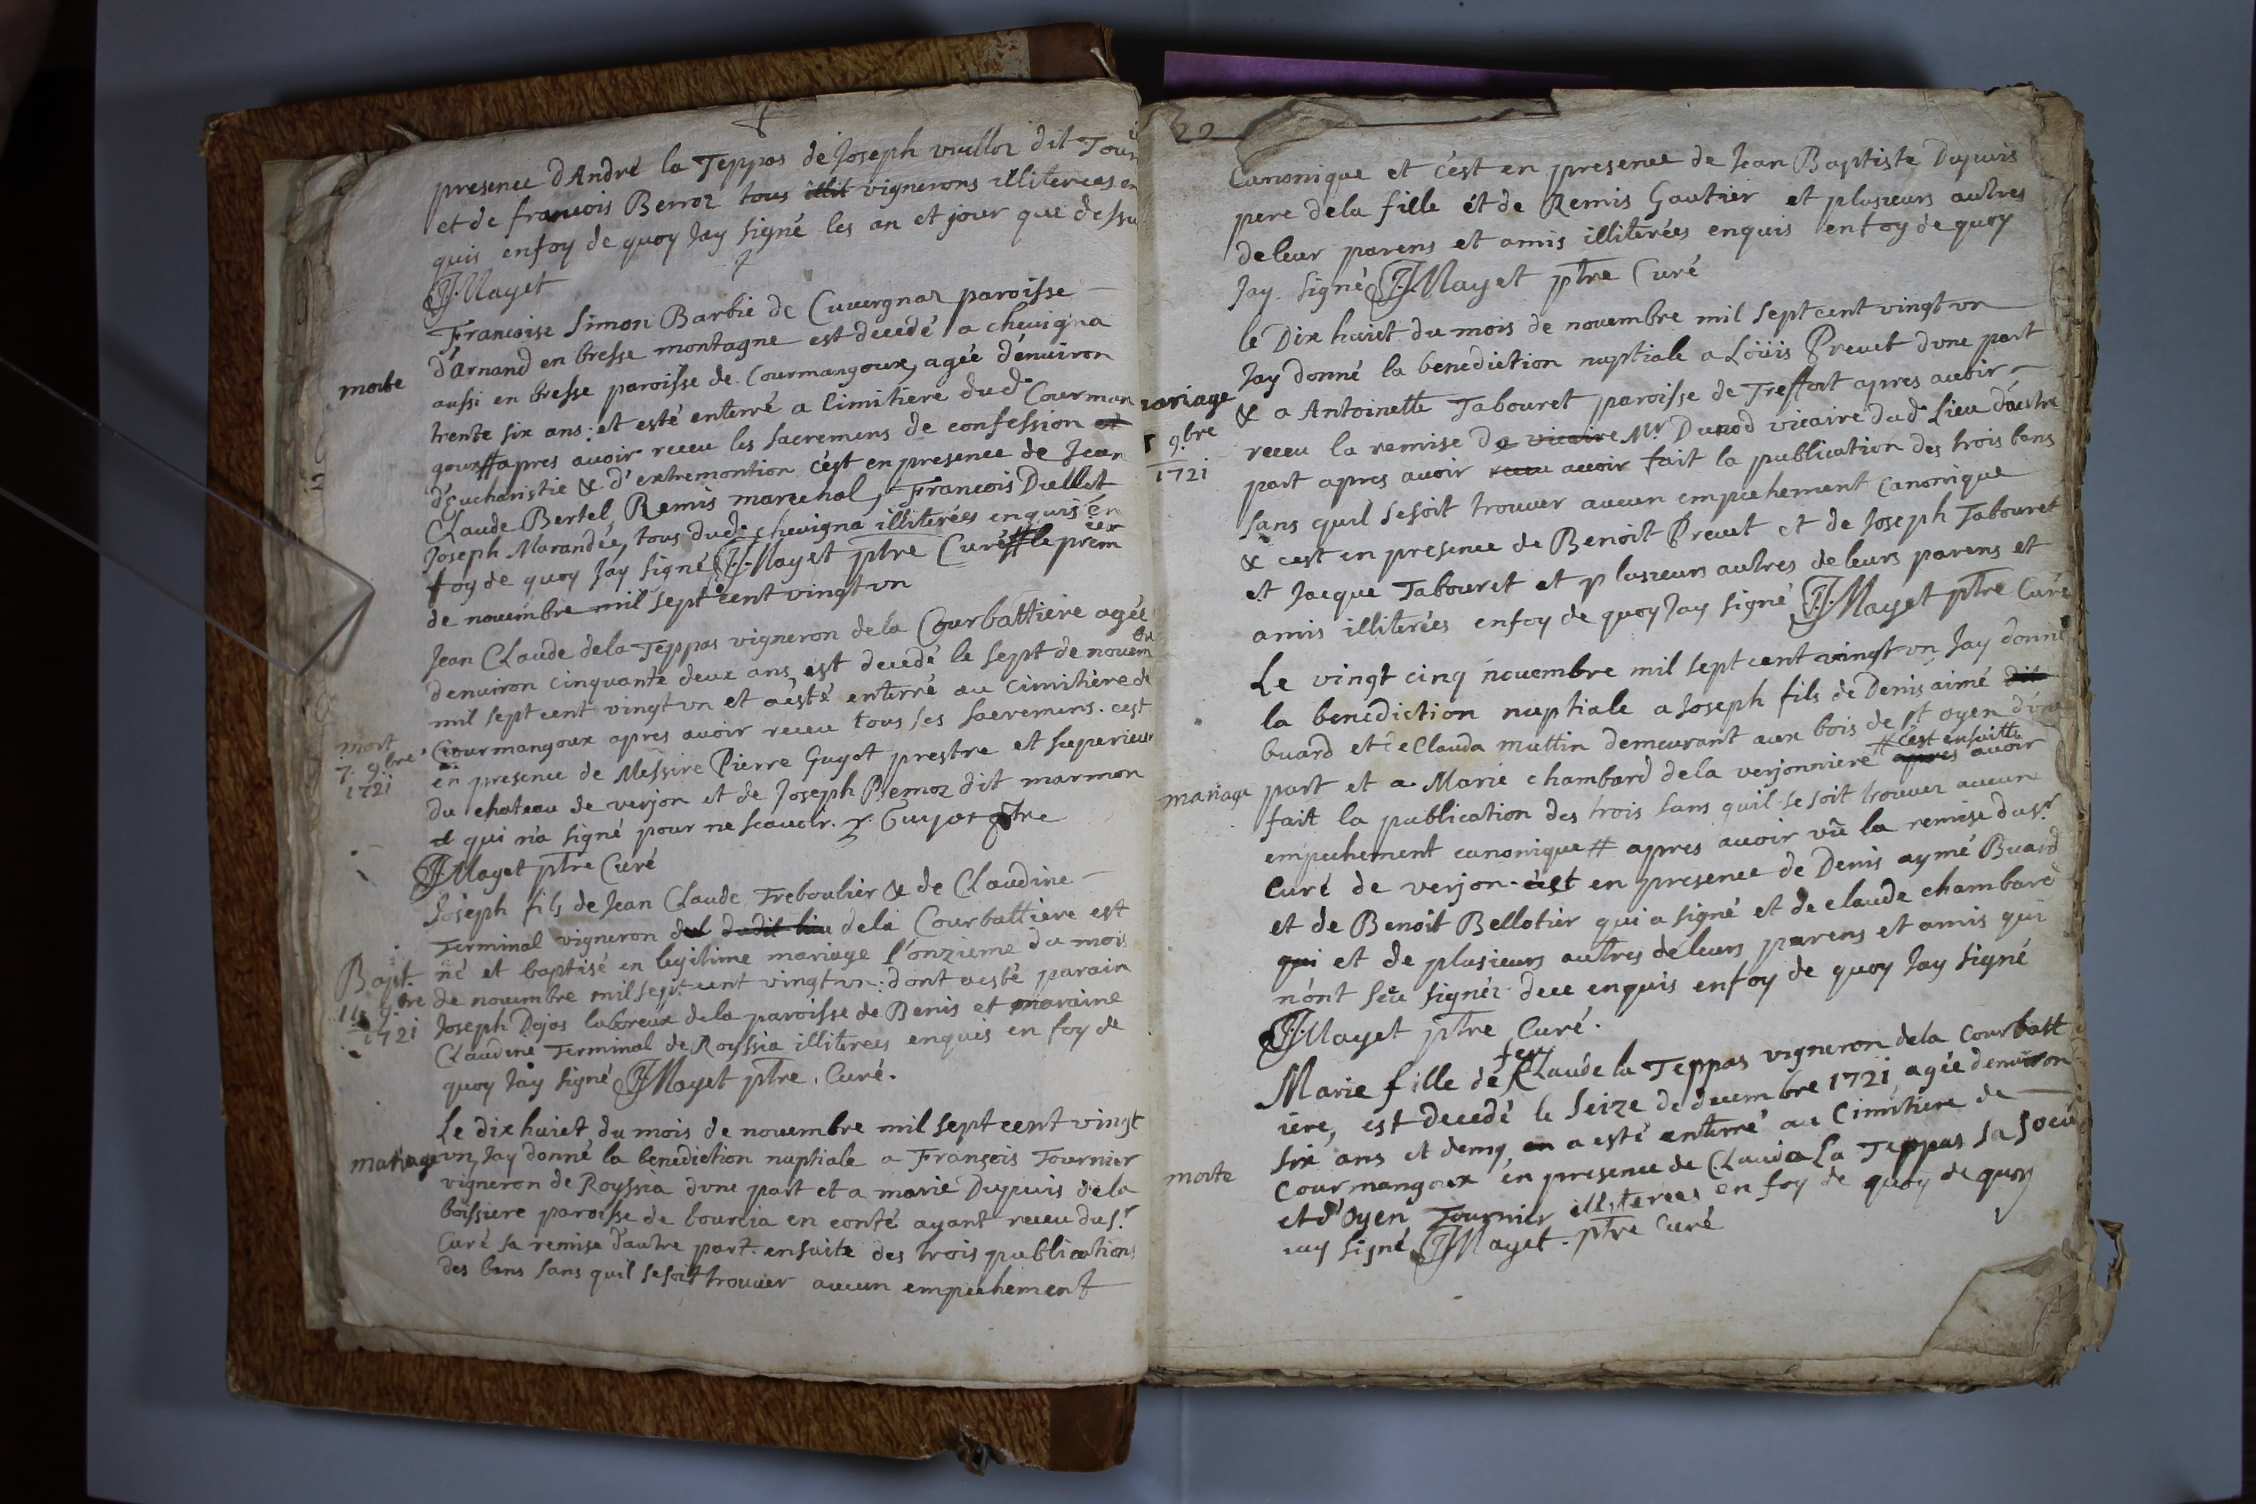 presence d'André la Teppas de Joseph vuilloz dit Tour
et de francois Berroz tous illit vignerons illiterees en
quis enfoy de quoy Jay signé les an et jour que dessu
J Mayet
Francoise Simon Barbie de Cuvergnaz paroisse
d'Arnand en bresse montagne est decedé a chevigna
morte
aussi en bresse paroisse de Courmangoux, agée d'environ
trente six ans: et esté enterré a Cimitiere dud. Courman
goux # apres avoir receu les sacremens de confession et
d'Eucharistie & d'extremontion c'est en presence de Jean
Claude Bertel, Remis marechal, Francois Dullet
Joseph Marandée, tous dud. chevigna illiterées enquis en
foy de quoy Jay signé J Mayet ptre Curé # le prem ier
de novembre mil sept cent vingt un
Jean Claude dela Teppas vigneron dela Courbattiere agée
denviron cinquante deux ans, est decedé le sept de novem bre
mil sept cent vingt un et a esté enterré au cimitière de
mort
7. 9.bre
1721
Courmangoux apres avoir receu tous ses sacremens. cest
en presence de Messire Pierre Guyot prestre et superieur
du chateau de verjon et de Joseph Bernoz dit marmon
et qui n'a signé pour ne scavoir. P. Guyot ptre
J Mayet ptre Curé
Joseph fils de Jean Claude Treboulier & de Claudine
Terminal vigneron dud dudit lieu dela Courbattiere est
Bapt.
11. 9.bre
1721
né et baptisé en legitime mariage l'onzieme du mois
de novembre mil sept cent vingt un: dont a esté parain
Joseph Dojas laboreux dela paroisse de Benis et maraine
Claudine Terminal de Royssia illiterees enquis en foy de
quoy Jay signé J Mayet ptre. Curé.
Le dix huict du mois de novembre mil sept cent vingt
mariage
un Jay donné la benediction nuptiale a François Tournier
vigneron de Royssia dune part et a marie Dupuis dela
boissiere paroisse de bourcia en conté ayant receu du sr
Curé sa remise d'autre part. ensuite des trois publications
des bans sans quil se soit trouver aucun empechement
22
Canonique et c'est en presence de Jean Baptiste Dupuis
pere dela fille et de Remis Gautier et plusieurs autres
deleur parens et amis illiterées enquis enfoy de quoy
Jay signé J Mayet ptre Curé
le Dix huict du mois de novembre mil sept cent vingt un
Jay donné la benediction nuptiale a Loüis Prevet dune part
mariage
9.bre
1721
& a Antoinette Tabouret paroisse de Treffort apres avoir
receu la remise de vicaire Mr Dunod vicaire dud. Lieu d'autre
part apres avoir receu avoir fait la publication des trois bans
sans quil se soit trouver aucun empechement canonique
& cest en presence de Benoit Prevet et de Joseph Tabouret
et Jacque Tabouret et plusieurs autres deleurs parens et
amis illiterées enfoy de quoy Jay signé J Mayet ptre Curé
Le vingt cinq novembre mil sept cent vingt un Jay donné
la benediction nuptiale a Joseph fils de Denis aimé dit
buard et de Clauda muttin demeurant aux bois de st oyen d'une
mariage
part et a Marie chambard dela verjonniere # c'est ensuitte apres avoir
fait la publication des trois sans quil se soit trouver aucun
empechement canonique # apres avoir vû la remise du sr
Curé de verjon c'est en presence de Denis aymé Buard
et de Benoit Bellotier qui a signé et de claude chambard
qui et de plusieurs autres deleurs parens et amis qui
n'ont sceu signer dece enquis enfoy de quoy Jay signé
J Mayet ptre Curé.
Marie fille de feu Claude la Teppas vigneron dela Courbatt
iere, est decedé le seize de decembre 1721, agée denviron
morte
six ans et demy, en a esté enterré au Cimitiere de
Courmangoux en presence de Clauda La Teppas sa soeu
et d'Oyen Tournier illiterees en foy de quoy de quoy
jay signé J Mayet ptre Curé